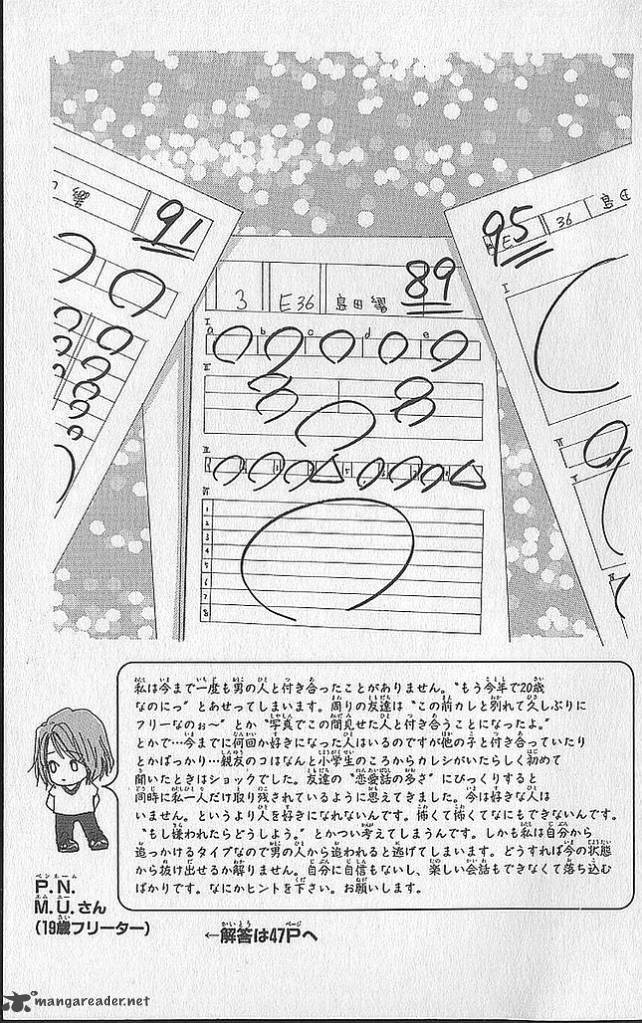 91
89
3 E36 島田
95
E 36 島田
I
a b c d e
II
III
IV
1
2
3
4
5
6
7
8
私は今まで一度も男の人と付き合ったことがありません。“もう今年で20歳
なのにっ”とあせってしまいます。周りの友達は“この前カレと別れて久しぶりに
フリーなのぉ〜”とか“写真でこの間見せた人と付き合うことになったよ。”
とかで…今までに何回か好きになった人はいるのですが他の子と付き合っていたり
とかばっかり…親友のコはなんと小学生のころからカレシがいたらしく初めて
聞いたときはショックでした。友達の“恋愛話の多さ”にびっくりすると
同時に私一人だけ取り残されているように思えてきました。今は好きな人は
いません。というより人を好きになれないんです。怖くて怖くてなにもできないんです。
“もし嫌われたらどうしよう。”とかつい考えてしまうんです。しかも私は自分から
追っかけるタイプなので男の人から追われると逃げてしまいます。どうすれば今の状態
から抜け出せるか解りません。自分に自信もないし、楽しい会話もできなくて落ち込む
ばかりです。なにかヒントを下さい。お願いします。
P.N.
M.U.さん
(19歳フリーター)
←解答は47Pへ
mangareader.net